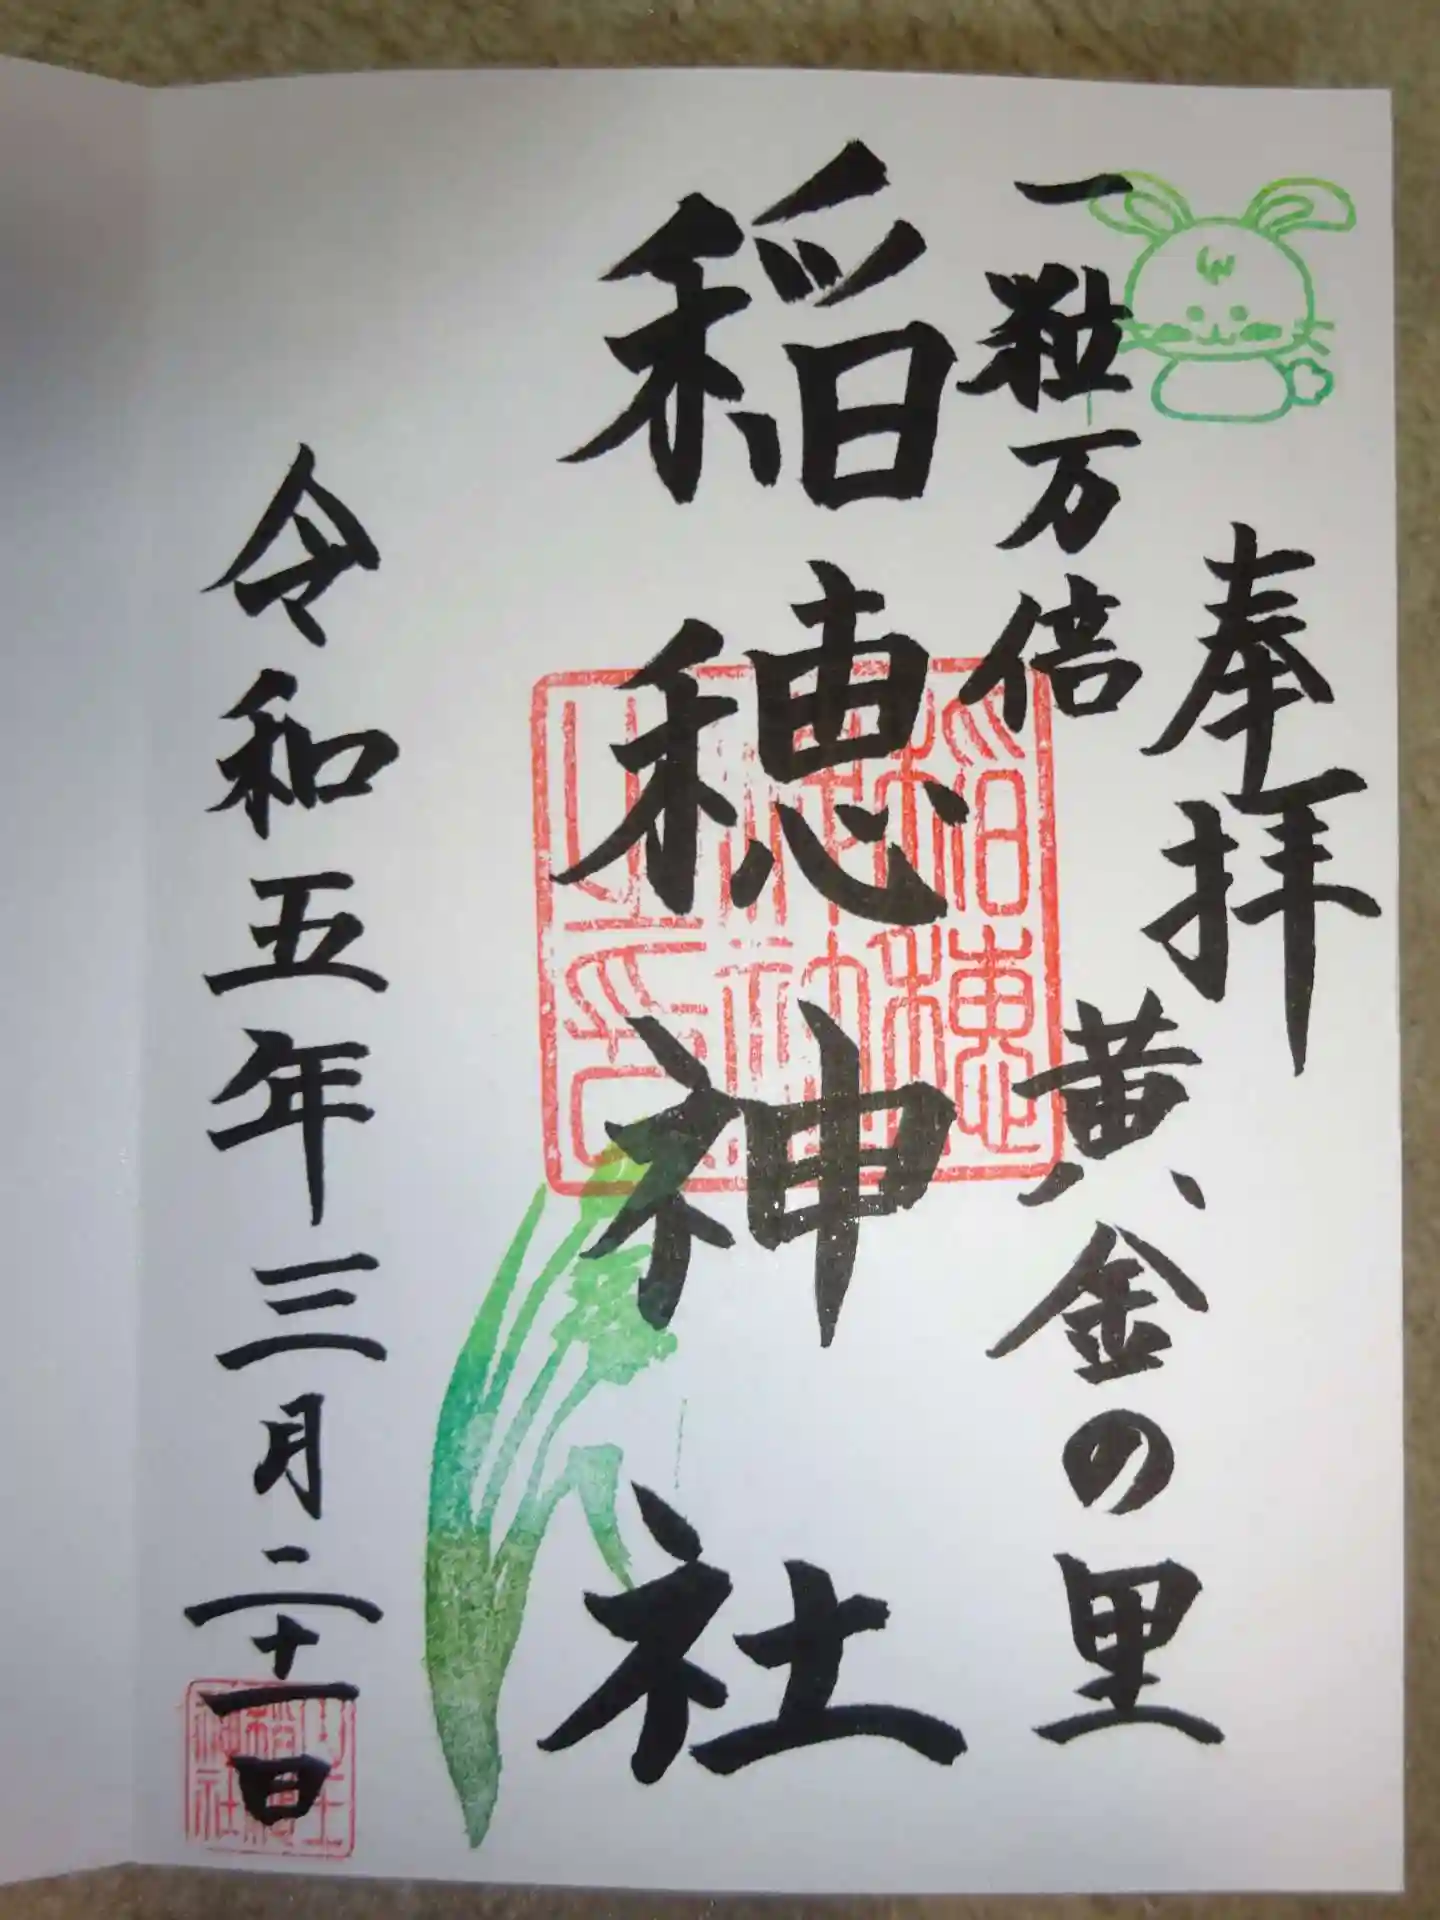 奉拝
一粒万倍
黄金の里
稲穂神社
稲穂神社之印
令和五年三月二十一日